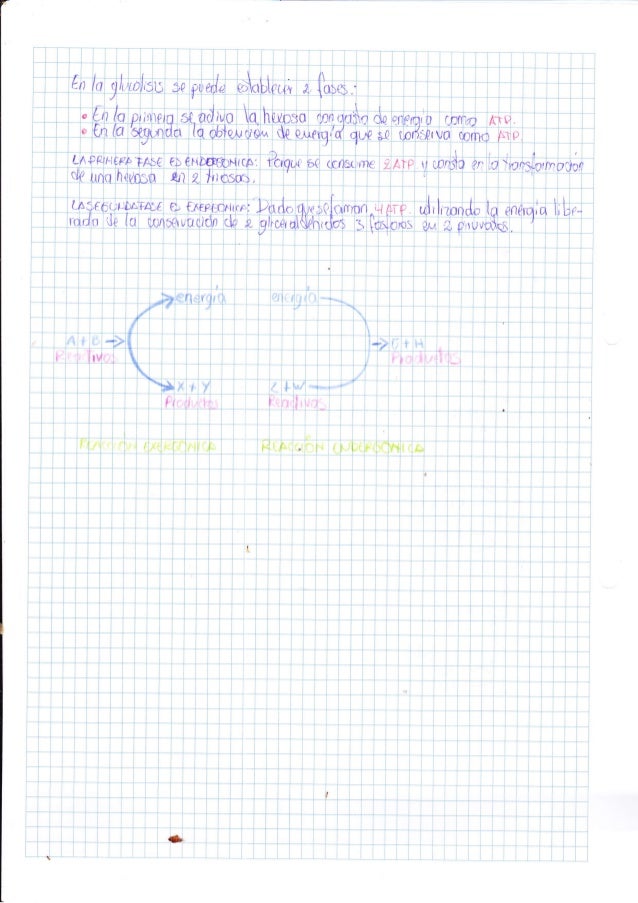 En la glucolisis se puede establecer 2 fases:
• En la primera se activa la hexosa con gasto de energía como ATP.
• En la segunda la obtención de energía que se conserva como ATP.
LA PRIMERA FASE ES ENDERGÓNICA: Porque se consume 2 ATP y consta en la transformación
de una hexosa en 2 triosas.
LA SEGUNDA FASE ES EXERGÓNICA: Dado que se forman 4 ATP. utilizando la energía libe-
rada de la conservación de 2 gliceraldehidos 3 fosforos en 2 piruvatos.
energía energía
A + B → → G + H
Reactivos Productos
X + Y Z + W
Productos Reactivos
REACCIÓN EXERGÓNICA REACCIÓN ENDERGÓNICA